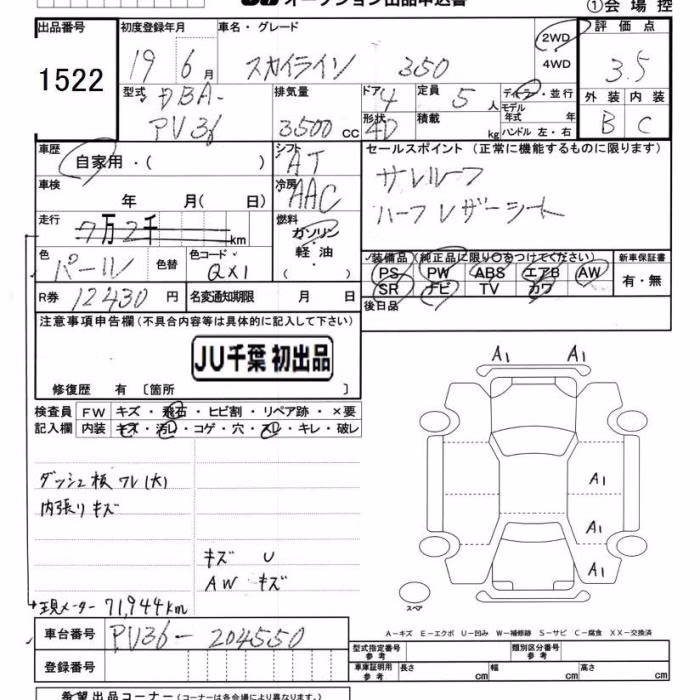 オークション出品申込書
①会場控
出品番号 初度登録年月 車名・グレード 評価点
1522 19 6月 スカイライン 350 2WD 4WD 3.5
型式 排気量 ドア 定員 ディーラー・並行 外装 内装
DBA- 4 5人 モデル年式 年 B C
PV36 3500cc 形状 4D 積載 kg ハンドル 左・右
車歴 シフト セールスポイント (正常に機能するものに限ります)
自家用・( ) AT サンルーフ
車検 冷房
年 月( 日) AAC ハーフレザーシート
走行 燃料
7万2千 km ガソリン
軽油
( )
色 色替 色コード 装備品(純正品に限り○をつけてください) 新車保証書
パール QX1 PS PW ABS エアB AW 有・無
R券 12430円 名変通知期限 月 日 SR ナビ TV カワ
後日品
注意事項申告欄(不具合内容等は具体的に記入して下さい)
JU千葉 初出品
修復歴 有 〔箇所 〕
検査員 FW キズ・飛石・ヒビ割・リペア跡・×要
記入欄 内装 キズ・汚レ・コゲ・穴・スレ・キレ・破レ
A1 A1
ダッシュ板ワレ(大)
内張りキズ
A1
A1
キズ U
AW キズ
A1
現メーター 71,944km
スペア
A-キズ E-エクボ U-凹み W-補修跡 S-サビ C-腐食 XX-交換済
車台番号 PV36-204550
型式指定番号 参考 類別区分番号 参考
登録番号
車庫証明用 参考 長さ cm 幅 cm 高さ cm
希望出品コーナー(コーナーは各会場により異なります。)